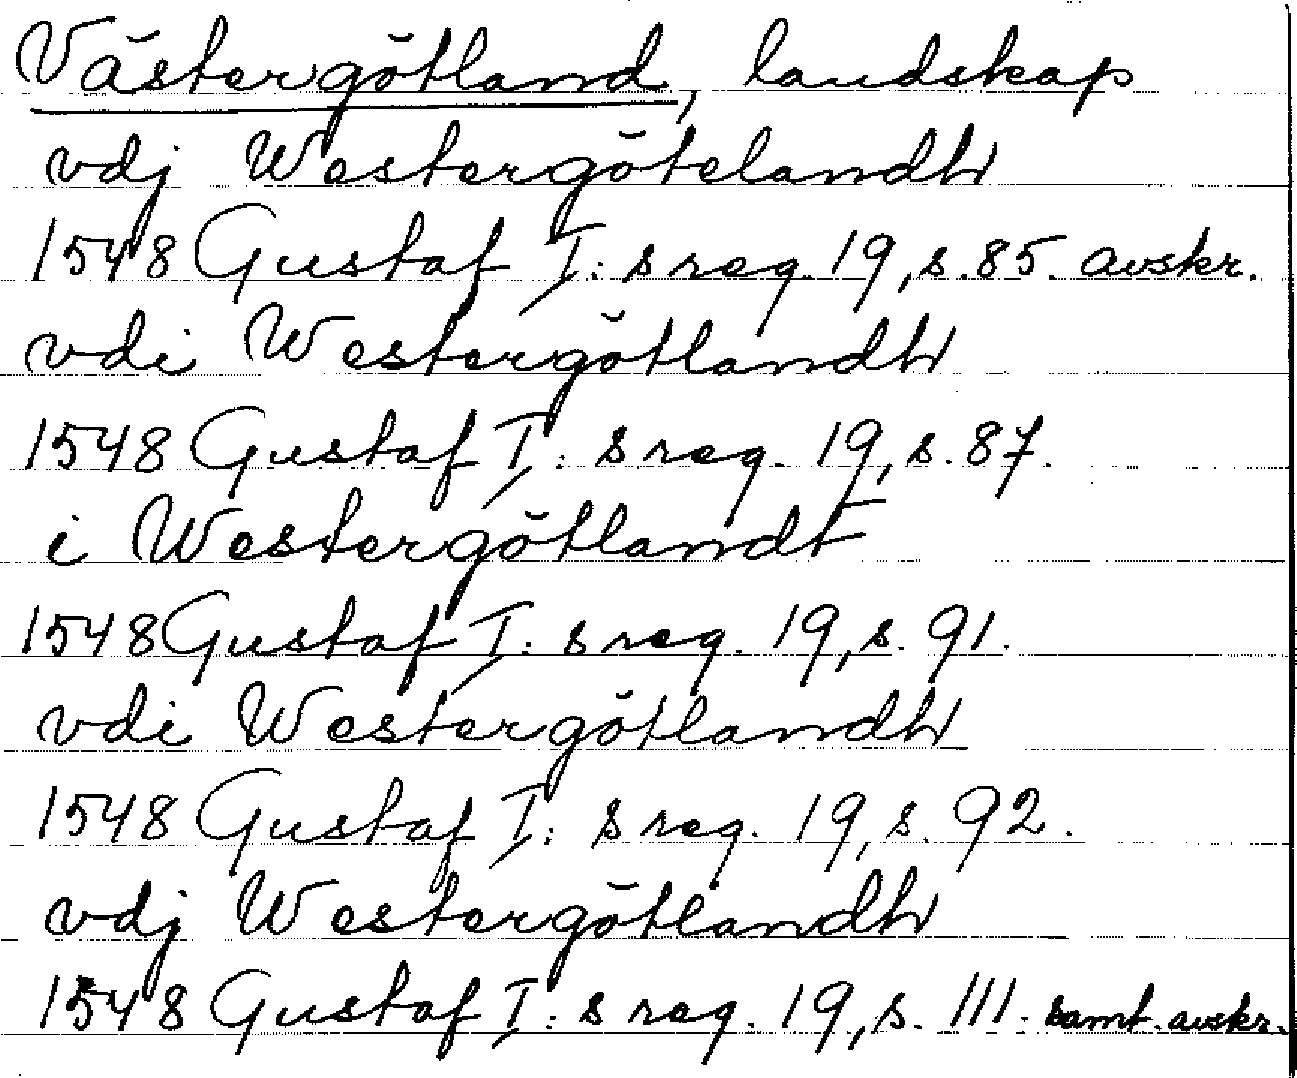 Västergötland, landskap
vdj Westergötelandh
1548 Gustaf I:s reg. 19, s. 85. avskr.
vdi Westergötlandh
1548 Gustaf I:s reg. 19, s. 87.
i Westergötlandt
1548 Gustaf I:s reg. 19, s. 91.
vdi Westergötlandh
1548 Gustaf I:s reg. 19, s. 92.
vdj Westergötlandh
1548 Gustaf I:s reg. 19, s. 111. samt. avskr.